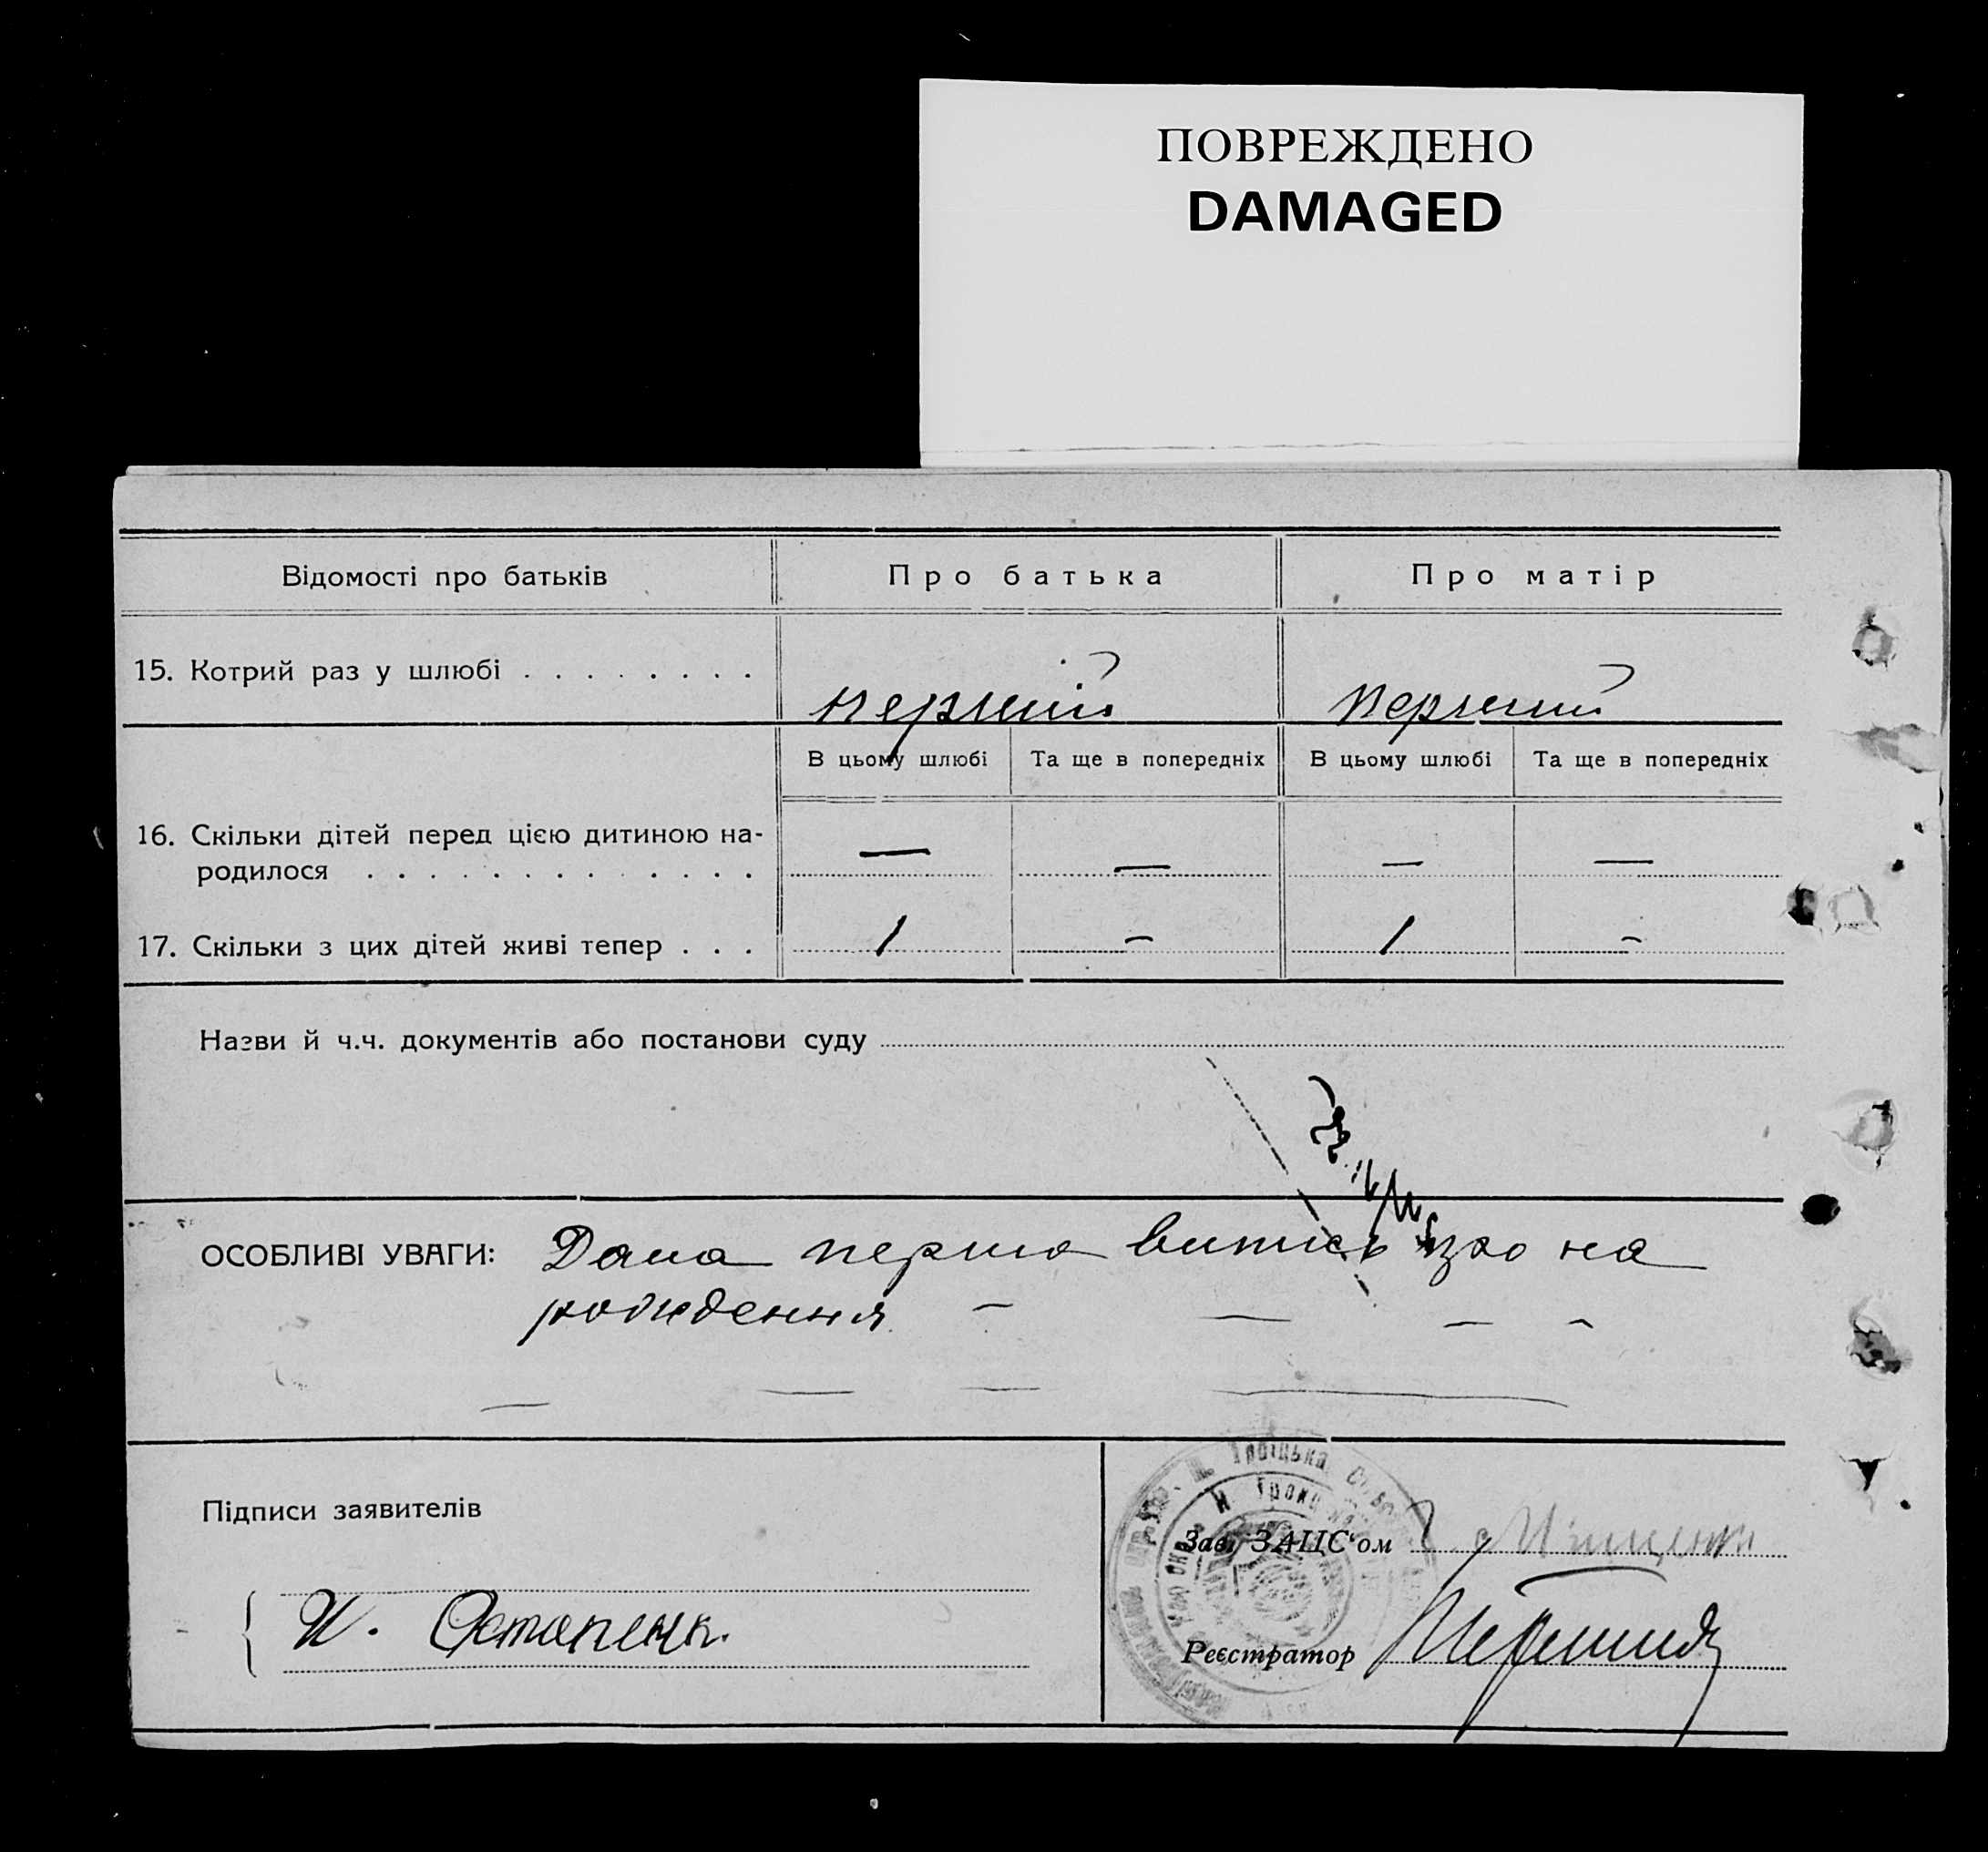 ПОВРЕЖДЕНО
DAMAGED
Відомості про батьків Про батька Про матір
15. Котрий раз у шлюбі . . . . . . . . перший перший
В цьому шлюбі Та ще в попередніх В цьому шлюбі Та ще в попередніх
16. Скільки дітей перед цією дитиною на-
родилося . . . . . . . . . . . . . — — — —
17. Скільки з цих дітей живі тепер . . . 1 - 1 -
Назви й ч.ч. документів або постанови суду
ОСОБЛИВІ УВАГИ: Дана перша випись про на
родження — — — —
Троїцька
Підписи заявителів
Зав. ЗАЦС'ом
И. Остапенк.
Реєстратор